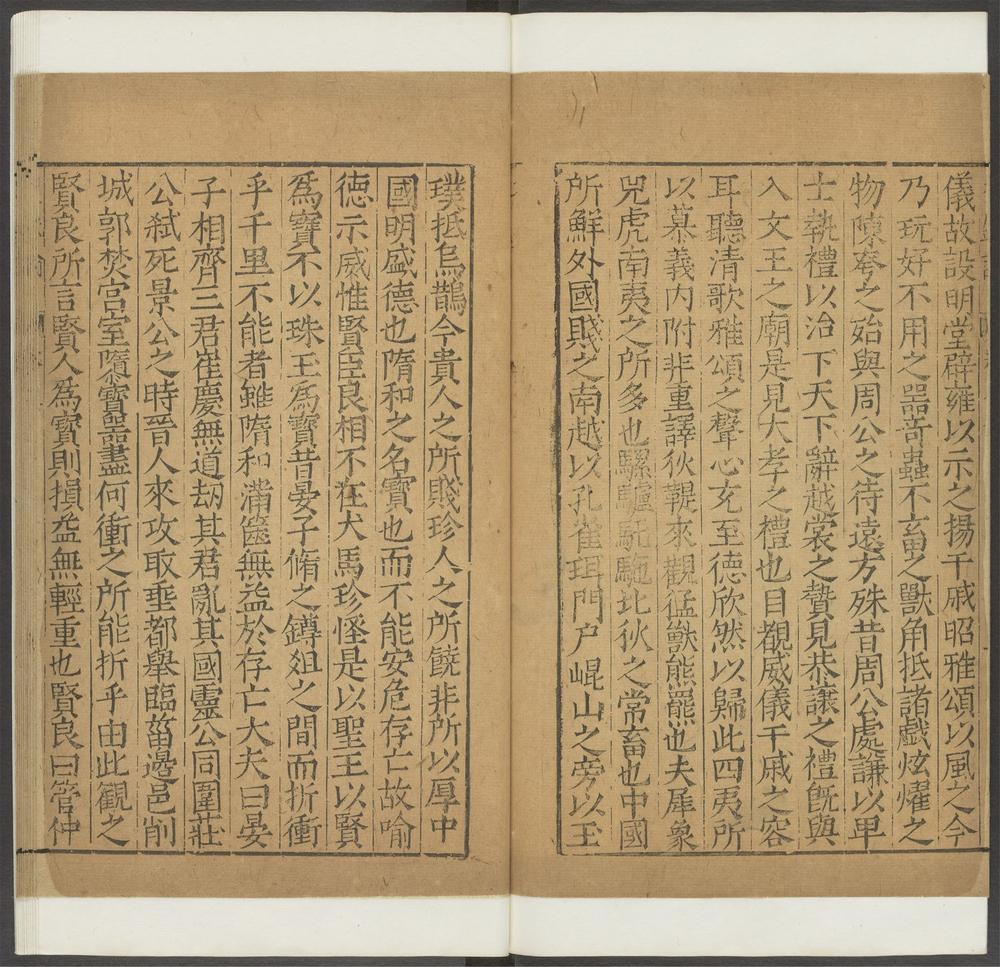 儀故設明堂辟雍以示之揚干戚昭雅頌以風之今
乃玩好不用之器奇蟲不畜之獸角抵諸戲炫燿之
物陳夸之殆與周公之待遠方殊昔周公處謙以卑
士執禮以治下天下辭越裳之贄見恭讓之禮既與
入文王之廟是見大孝之禮也目覩威儀干戚之容
耳聽清歌雅頌之聲心充至德欣然以歸此四夷所
以慕義內附非重譯狄鞮來觀猛獸熊羆也夫犀象
兕虎南夷之所多也騾驢馲駞北狄之常畜也中國
所鮮外國賤之南越以孔雀珥門户崐山之旁以玉
璞抵烏鵲今貴人之所賤珍人之所饒非所以厚中
國明盛德也隋和之名寶也而不能安危存亡故喻
德示威惟賢臣良相不在犬馬珍怪是以聖王以賢
爲寶不以珠玉爲寶昔晏子脩之罇俎之間而折衝
乎千里不能者雖隋和滿篋無益於存亡大夫曰晏
子相齊三君崔慶無道劫其君亂其國靈公同圍莊
公弑死景公之時晉人來攻取垂都舉臨菑邊邑削
城郭焚宮室隳寶器盡何衝之所能折乎由此觀之
賢良所言賢人爲寶則損益無輕重也賢良曰管仲